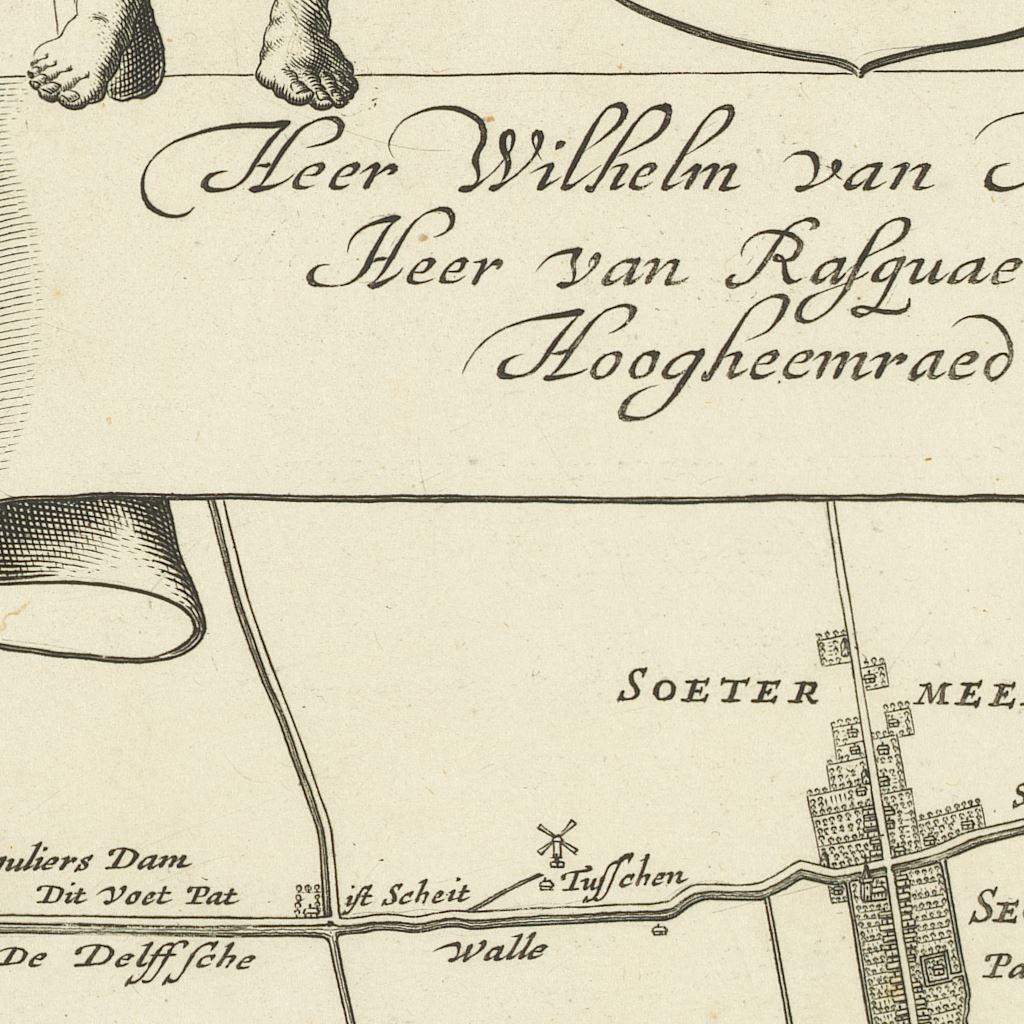 Heer Wilhelm van
Heer van Raſquae
Hoogheemraed
SOETER MEE
Dam
Dit Voet Pat iſt Scheit Tuſſchen
De Delffſche Walle